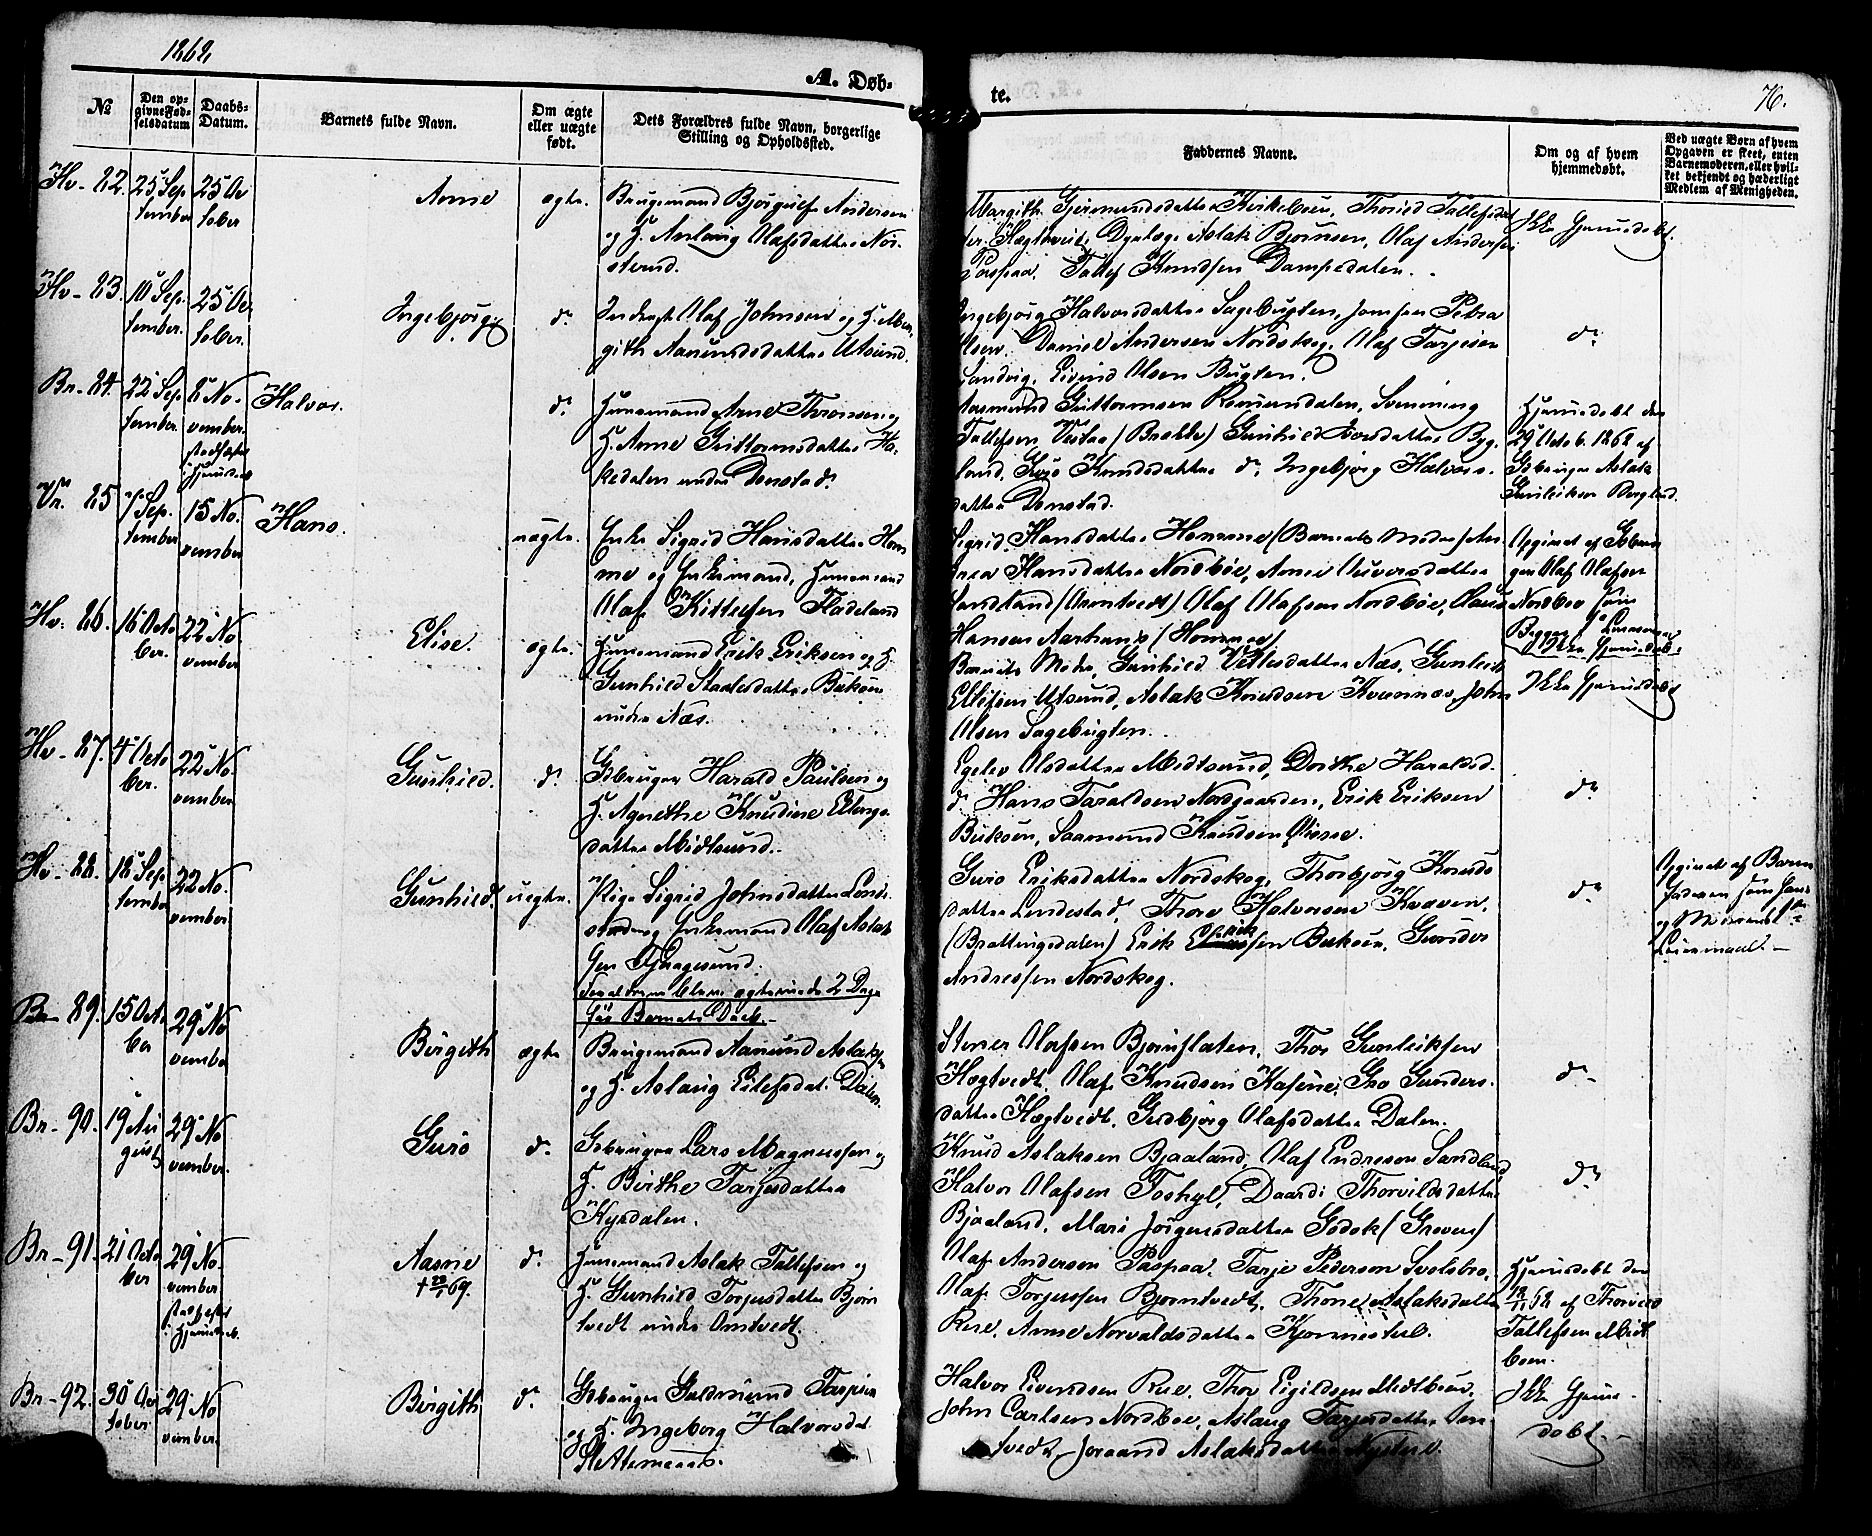 1868.
A. Døb-
te.
76.
№
Den op-
givne Fød-
selsdatum
Daabs-
Datum.
Barnets fulde Navn.
Om ægte
eller uægte
født.
Dets Forældres fulde Navn, borgerlige
Stilling og Opholdssted.
Faddernes Navne.
Om og af hvem
hjemmedøbt.
Ved uægte Børn af hvem
Opgaven er skeet, enten
Barnemoderen, eller hvil-
ket bekjendt og hæderligt
Medlem af Menigheden.
Hv- 82.
25 Sep
tember
25 Oc
tober
Anne
ægte.
Brugemand Bjørgulf Andersen
og H. Aslaug Olafsdatter Nor-
Margith Gjermundsdatter Kirkebøen, Thorild Tallefsdat
ter Hægtveit, Aslak Bjørnsen, Olaf Andersen
Paspaa. Tallef Knudsen Dampedalen.
Ikke Hjemmedøbt.
Hv- 83.
10 Sep.
tember.
25 Oc
tober.
Ingebjørg
do
Olaf Johnsen og H. Mar-
gith Aanundsdatter Utsund.
Ingebjørg Halvorsdatter Sagebugten, Jomfru Petra
Olsen. Daniel Andersen Nordskog, Olaf Tarjesen
Sandvig, Eivind Olsen Bugten.
do
Br- 84.
22 Sep
tember.
8 No-
vember.
stadfæstet
i Hjemmed.
Halvor.
do
Huusmand Arne Thronsen og
H. Anne Guttormsdatter Ha-
kedalen under Donstad.
Aasmund Guttormsen Romundalen, Svenning
Tallefsen Vestaa (Brokke) Gunhild Larsdatter Byg-
land, Guro Knudsdatter do, Ingebjørg Halvors-
datter Donstad.
Hjemmedøbt den
29 Octob. 1868 af
Gbruger Aslak
Gunleiksen Berglid.
Vr. 85
7 Sep.
tember
15 No.
vember
Hans.
uægte.
Enke Sigrid Hansdatter Hom
me og Enkemand, Huusmand
Olaf Kittelsen Fladeland
Sigrid Hansdatter Homme (Barnets Moder) An-
drea Hansdatter Nordbøe, Anne Ouversdatter
Sandland (Omtvedt) Olaf Olafsen Nordbøe, Olaus
Hansen Aarhuus (Homme)
Opgivet af Gbru
ger Olaf Olafsen
Nordbøe som
Begges
Ikke Hjemmedøbt
Hv- 86.
16 Octo
ber.
22 No
vember
Elise.
ægte.
Huusmand Erik Eriksen og H.
Gunhild Staalesdatter Buksøen
under Næs.
Barnets Moder, Gunhild Vetlesdatter Næs, Gunleik
Ellefsen Utsund, Aslak Knudsen Kvannes, John
Olsen Sagebugten.
Ikke Hjemmedøbt
Hv- 87.
4 Octo
ber.
22 No.
vember
Gunhild.
do
Gbruger Harald Paulsen og
H. Agnethe Knudine Ellings-
datter Midtsund.
Egelev Olsdatter Midtsund, Dorthe Haraldsd.
do. Hans Taraldsen Nordgaarden, Erik Eriksen
Buksøen, Saamund Knudsen
do
Hv- 88.
18 Sep.
tember
22 No.
vember
Gunhild.
uægte.
Pige Sigrid Johnsdatter Lende-
stad og Enkemand Olaf Aslak
sen Tjaagesund.
Forældrene bleve ægteviede 2 Dage
før Barnets Daab.
Guro Eriksdatter Nordskog, Thorbjørg Knuds
datter Lendestad, Thore Halvorsen Kvaven,
(Brattingsdalen) Erik Eriksen Buksøen, Gunder
Andressen Nordskog.
do
Opgivet af Barne
faderen som hans
og Moderens 1ste
Leiermaal.
Br- 89.
15 Octo
ber
29 No
vember
Birgith
ægte
Brugemand Aanund Aslaks
og H. Aslaug Eilefsdat. Dalen.
Stener Olafsen Bjørnflaten, Thor Gunleiksen
Hægtvedt, Olaf Knudsen Gro Gunders-
datter Hægtvedt, Gudbjørg Olafsdatter Dalen.
do
Br- 90.
19 Au
gust
29 No
vember.
Guro
do
Gbruger Lars Magnussen og
H. Birthe Tarjesdatter
Kyrdalen.
Knud Aslaksen Bjaaland, Olaf Endresen Sandland
Halvor Olafsen Daardi Thorvildsdatter
Bjaaland, Mari Jørgensdatter Godok (Greven)
do
Br- 91.
21 Octo
ber
29 No
vember
stadfæstet
i Hjemmed.
Aasne
do
Huusmand Aslak Tallefsen og
H. Gunhild Torjusdatter Bjørn
tvedt under Omtvedt.
Olaf Andersen Paspaa, Tarje Pedersen
Olaf Torjussen Bjørntvedt, Thone Aslaksdatter
Rue, Anne Norvaldsdatter
Hjemmedøbt den
18/11 68 af Thorvild
Tallefsen Midt
bøen.
Br- 92.
30 Oc
tober
29 No
vember.
Birgith
do
Gbruger Guldmund Tarjesen
og H. Ingeborg Halvorsdat
Halvor Eivindsen Rue, Thor Eigildsen Midtbøen,
John Carlsen Nordbøe, Aslaug Tarjesdatter Om-
tvedt, Joraand Aslaksdatter
Ikke Hjemme-
døbt.